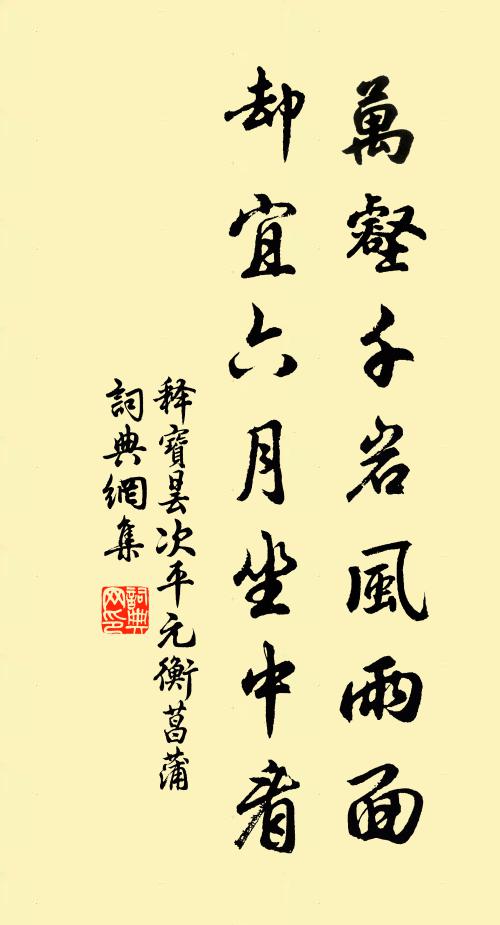 萬壑千岩風雨面
却宜六月坐中看
释寶曇次平元衡菖蒲
詞典網集
詞典
网印